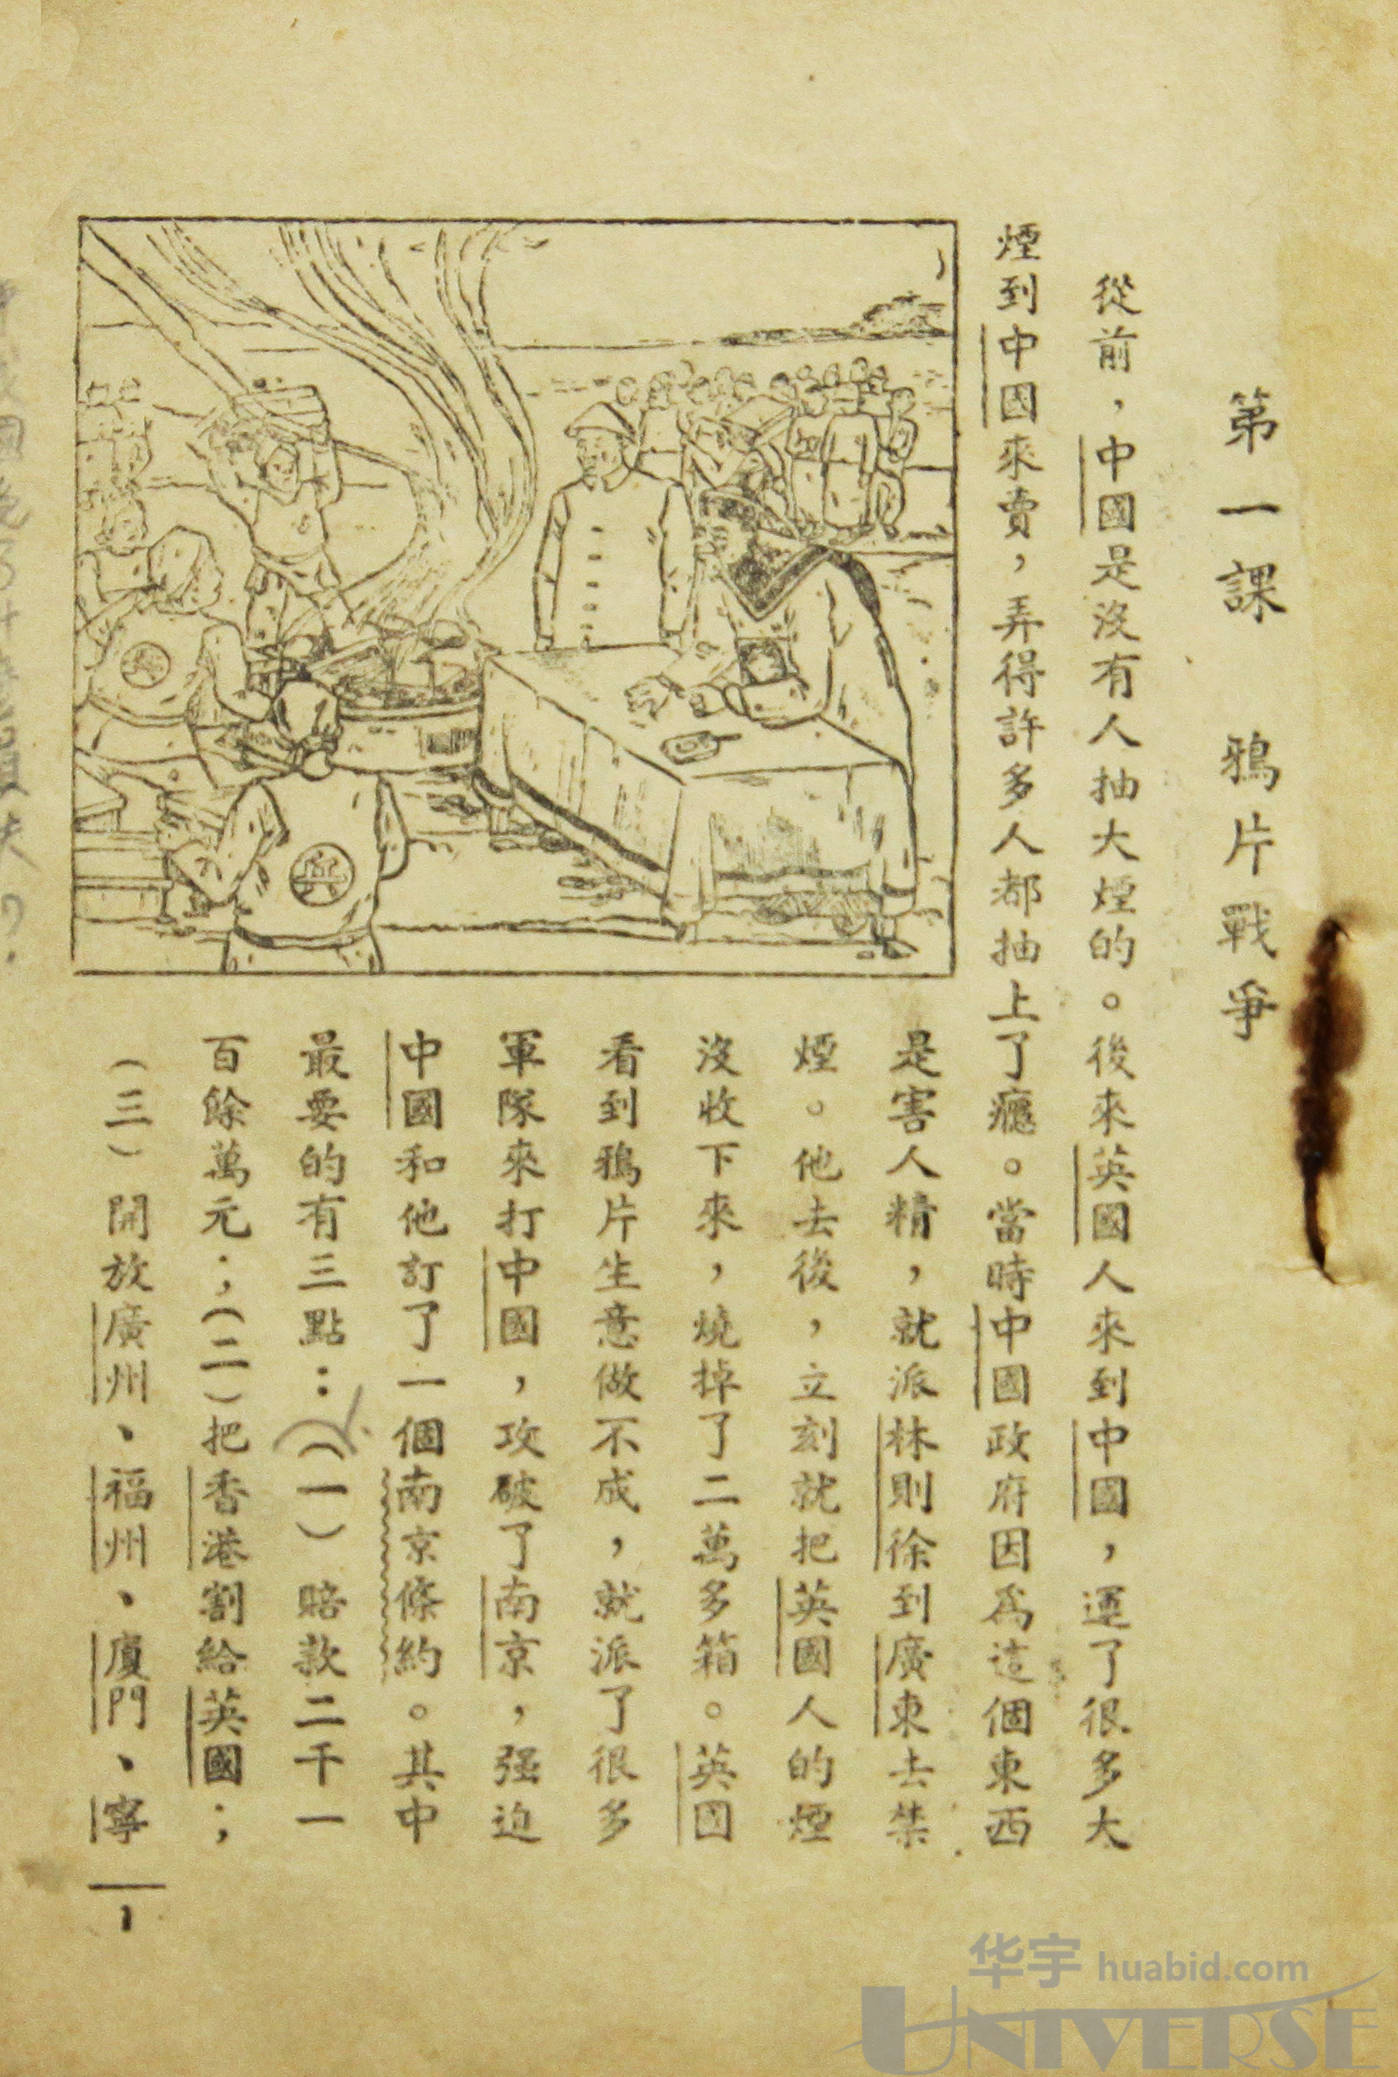 第一課　鴉片戰爭
從前，中國是没有人抽大煙的。後來英國人來到中國，運了很多大
煙到中國來賣，弄得許多人都抽上了癮。當時中國政府因爲這個東西
是害人精，就派林則徐到廣東去禁
煙。他去後，立刻就把英國人的煙
没收下來，燒掉了二萬多箱。英國
看到鴉片生意做不成，就派了很多
軍隊來打中國，攻破了南京，强迫
中國和他訂了一個南京條約。其中
最要的有三點：（一）賠款二千一
百餘萬元；（二）把香港割給英國；
（三）開放廣州、福州、廈門、寧
1
兵
兵
华宇 huabid.com
UNIVERSE